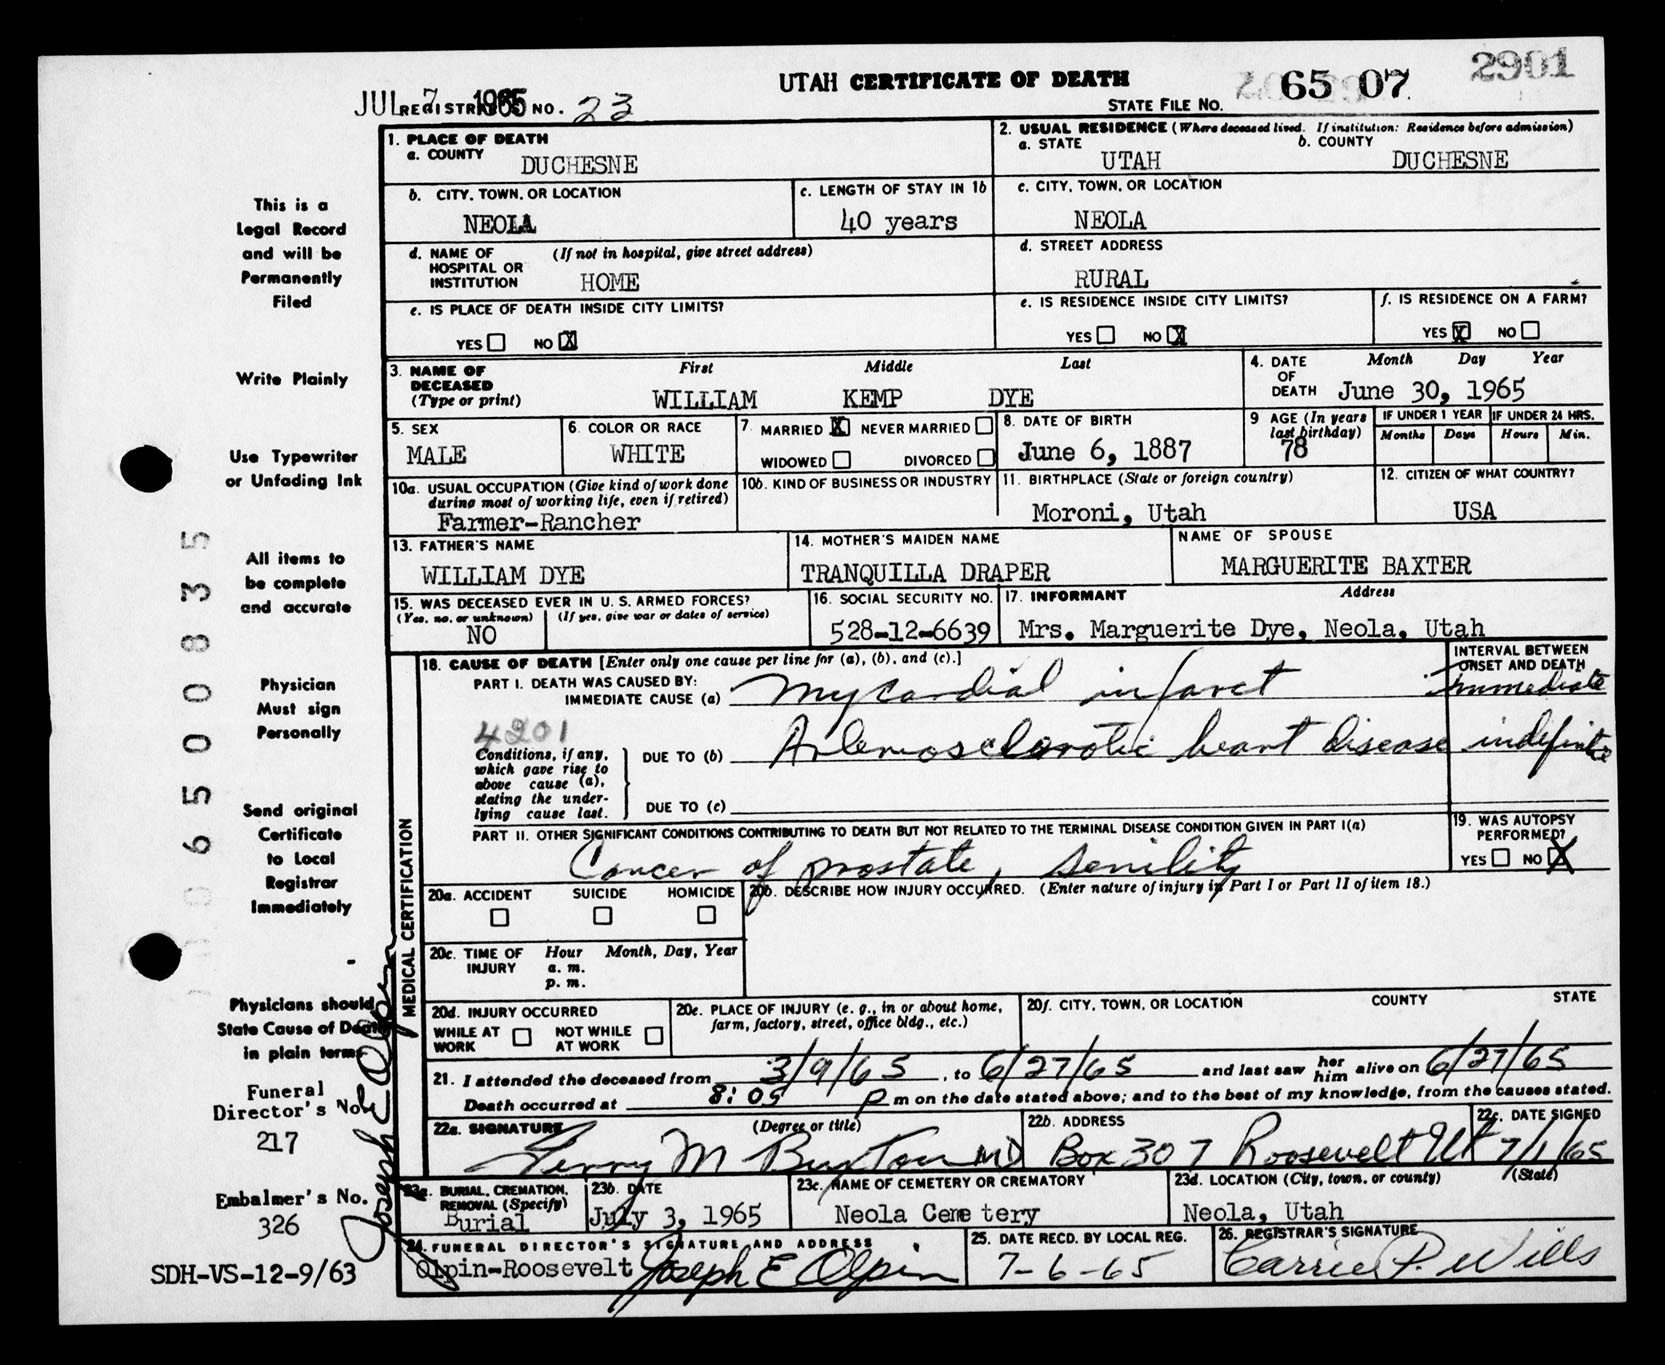 2901
UTAH CERTIFICATE OF DEATH
JUL 7 1965
REGISTRAR'S NO. 23
STATE FILE NO. 65 07
1. PLACE OF DEATH
a. COUNTY DUCHESNE
2. USUAL RESIDENCE (Where deceased lived. If institution: Residence before admission)
a. STATE UTAH b. COUNTY DUCHESNE
b. CITY, TOWN, OR LOCATION NEOLA
c. LENGTH OF STAY IN 1b 40 years
c. CITY, TOWN, OR LOCATION NEOLA
d. NAME OF HOSPITAL OR INSTITUTION (If not in hospital, give street address) HOME
d. STREET ADDRESS RURAL
e. IS PLACE OF DEATH INSIDE CITY LIMITS?
YES NO X
e. IS RESIDENCE INSIDE CITY LIMITS?
YES NO X
f. IS RESIDENCE ON A FARM?
YES X NO
3. NAME OF DECEASED (Type or print) First Middle Last
WILLIAM KEMP DYE
4. DATE OF DEATH Month Day Year
June 30, 1965
5. SEX MALE
6. COLOR OR RACE WHITE
7. MARRIED X NEVER MARRIED
WIDOWED DIVORCED
8. DATE OF BIRTH June 6, 1887
9 AGE (In years last birthday) 78
IF UNDER 1 YEAR Months Days
IF UNDER 24 HRS. Hours Min.
10a. USUAL OCCUPATION (Give kind of work done during most of working life, even if retired)
Farmer-Rancher
10b. KIND OF BUSINESS OR INDUSTRY
11. BIRTHPLACE (State or foreign country)
Moroni, Utah
12. CITIZEN OF WHAT COUNTRY?
USA
13. FATHER'S NAME
WILLIAM DYE
14. MOTHER'S MAIDEN NAME
TRANQUILLA DRAPER
NAME OF SPOUSE
MARGUERITE BAXTER
15. WAS DECEASED EVER IN U. S. ARMED FORCES?
(Yes, no, or unknown) (If yes, give war or dates of service)
NO
16. SOCIAL SECURITY NO.
528-12-6639
17. INFORMANT Address
Mrs. Marguerite Dye, Neola, Utah
MEDICAL CERTIFICATION
18. CAUSE OF DEATH [Enter only one cause per line for (a), (b), and (c).]
INTERVAL BETWEEN ONSET AND DEATH
PART I. DEATH WAS CAUSED BY:
IMMEDIATE CAUSE (a) Myocardial infarct Immediate
4201
Conditions, if any, which gave rise to above cause (a), stating the underlying cause last.
DUE TO (b) Arteriosclerotic heart disease indefinite
DUE TO (c)
PART II. OTHER SIGNIFICANT CONDITIONS CONTRIBUTING TO DEATH BUT NOT RELATED TO THE TERMINAL DISEASE CONDITION GIVEN IN PART I(a)
Cancer of prostate, Senility
19. WAS AUTOPSY PERFORMED?
YES NO X
20a. ACCIDENT SUICIDE HOMICIDE
20b. DESCRIBE HOW INJURY OCCURRED. (Enter nature of injury in Part I or Part II of item 18.)
20c. TIME OF INJURY Hour Month, Day, Year
a. m.
p. m.
20d. INJURY OCCURRED
WHILE AT WORK NOT WHILE AT WORK
20e. PLACE OF INJURY (e. g., in or about home, farm, factory, street, office bldg., etc.)
20f. CITY, TOWN, OR LOCATION COUNTY STATE
21. I attended the deceased from 3/9/65, to 6/27/65 and last saw her him alive on 6/27/65
Death occurred at 8:05 p m on the date stated above; and to the best of my knowledge, from the causes stated.
22a. SIGNATURE (Degree or title)
M Buxton MD
22b. ADDRESS
Box 307 Roosevelt Ut
22c. DATE SIGNED
7/1/65
23a. BURIAL, CREMATION, REMOVAL (Specify)
Burial
23b. DATE
July 3, 1965
23c. NAME OF CEMETERY OR CREMATORY
Neola Cemetery
23d. LOCATION (City, town, or county) (State)
Neola, Utah
24. FUNERAL DIRECTOR'S SIGNATURE AND ADDRESS
Olpin-Roosevelt Joseph E Olpin
25. DATE RECD. BY LOCAL REG.
7-6-65
26. REGISTRAR'S SIGNATURE
Carrie P. Wills
This is a
Legal Record
and will be
Permanently
Filed
Write Plainly
Use Typewriter
or Unfading Ink
All items to
be complete
and accurate
Physician
Must sign
Personally
Send original
Certificate
to Local
Registrar
Immediately
Physicians should
State Cause of Death
in plain terms
Funeral
Director's No.
217
Embalmer's No.
326
Joseph E Olpin
SDH-VS-12-9/63
065000835